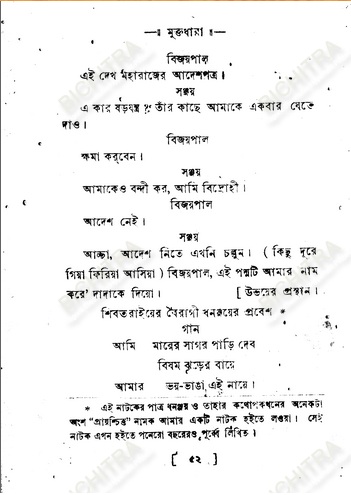 —: মুক্তধারা :—
বিজয়পাল
এই দেখ মহারাজের আদেশপত্র।
সঞ্জয়
এ কার ষড়যন্ত্র তাঁর কাছে আমাকে একবার যেতে
দাও।
বিজয়পাল
ক্ষমা করবেন।
সঞ্জয়
আমাকেও বন্দী কর, আমি বিদ্রোহী।
বিজয়পাল
আদেশ নেই।
সঞ্জয়
আচ্ছা, আদেশ নিতে এখনি চল্লুম। ( কিছু দূরে
গিয়া ফিরিয়া আসিয়া ) বিজয়পাল, এই পদ্মটি আমার নাম
করে' দাদাকে দিয়ো। [ উভয়ের প্রস্থান।
শিবতরাইয়ের বৈরাগী ধনঞ্জয়ের প্রবেশ *
গান
আমি মারের সাগর পাড়ি দেব
বিষম ঝড়ের বায়ে
আমার ভয়-ভাঙা এই নায়ে।
* এই নাটকের পাত্র ধনঞ্জয় ও তাহার কথোপকথনের অনেকটা
অংশ "প্রায়শ্চিত্ত" নামক আমার একটি নাটক হইতে লওয়া। সেই
নাটক এখন হইতে পনেরো বছরেরও পূর্ব্বে লিখিত।
[ ৫২ ]
BICHITRA